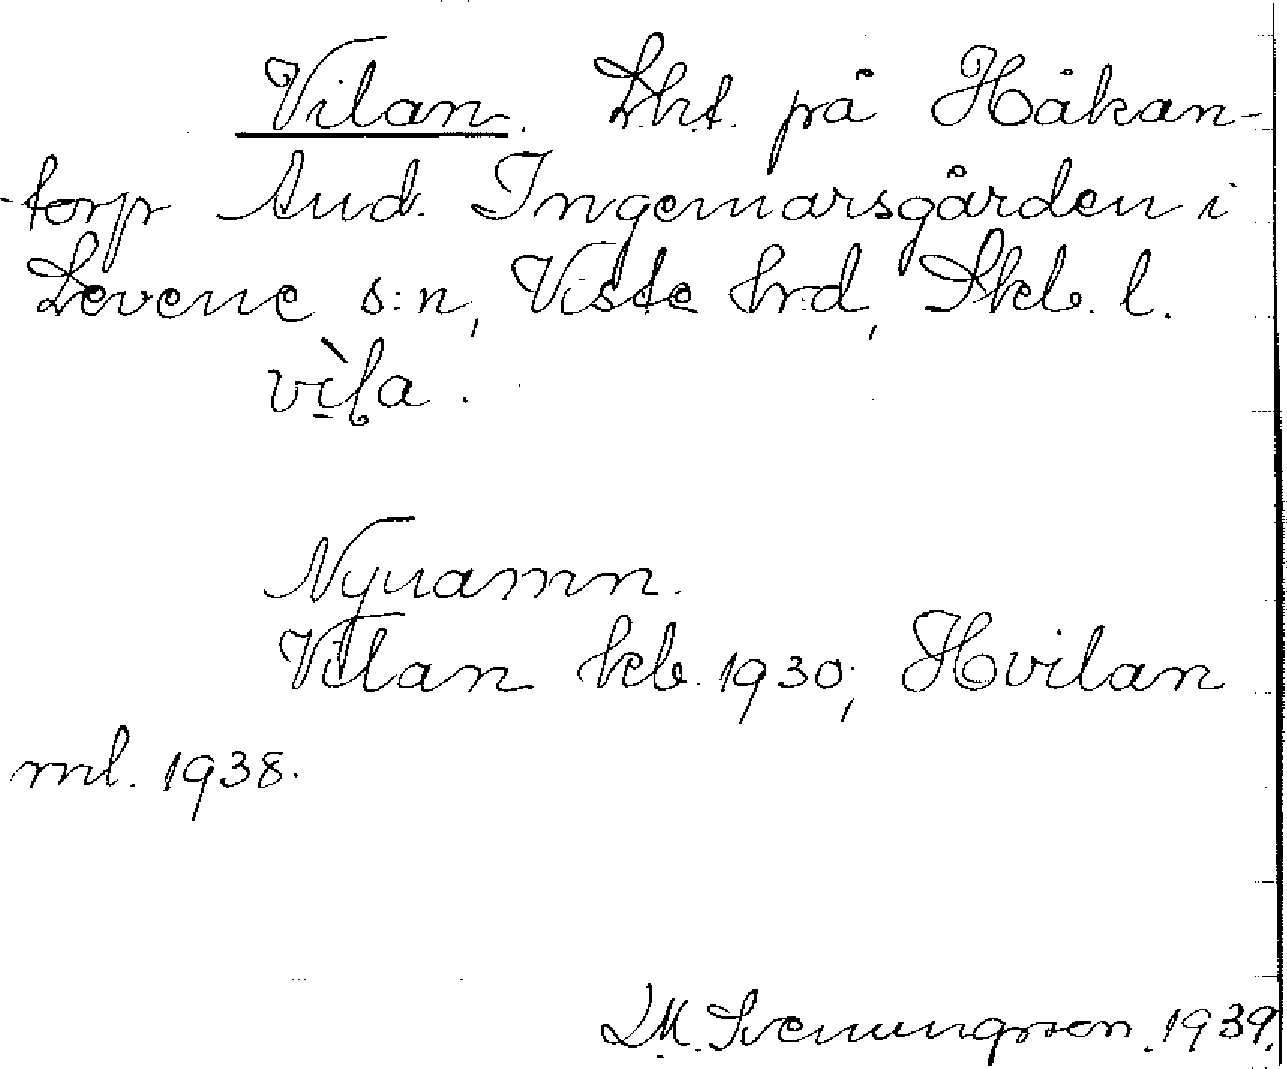 Vilan. Lht. på Håkan-
-torp And. Ingemarsgården i
Levene s:n, Viste hrd, Skb. l.
vìla.
Nynamn.
Vilan kb. 1930; Hvilan
ml. 1938.
L.M. Svenungsson. 1939.